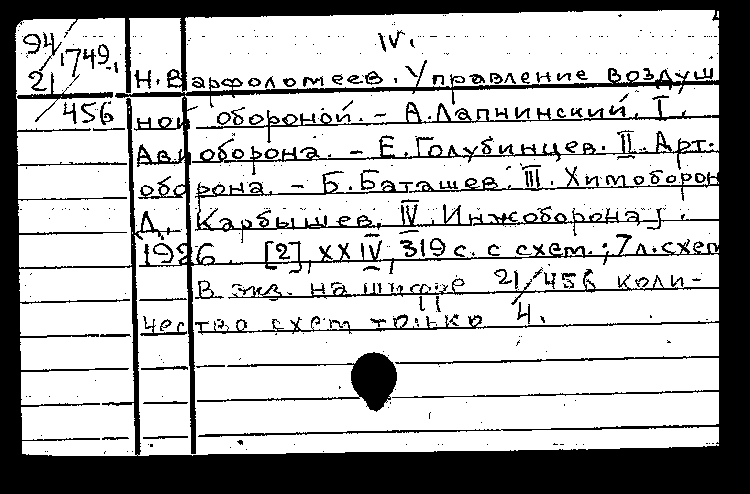 IV.
94/1749.
21/456
Н. Варфоломеев. Управление воздуш
ной обороной. – А. Лапчинский. I.
Авиоборона. – Е. Голубинцев. II. Арт.
оборона. – Б. Баташев. III. Химоборон
Д. Карбышев. IV. Инжоборона].
1926. [2], XXIV, 319 с. с схем.; 7 л. схем
В экз. на шифре 21/456 коли-
чество схем только 4.